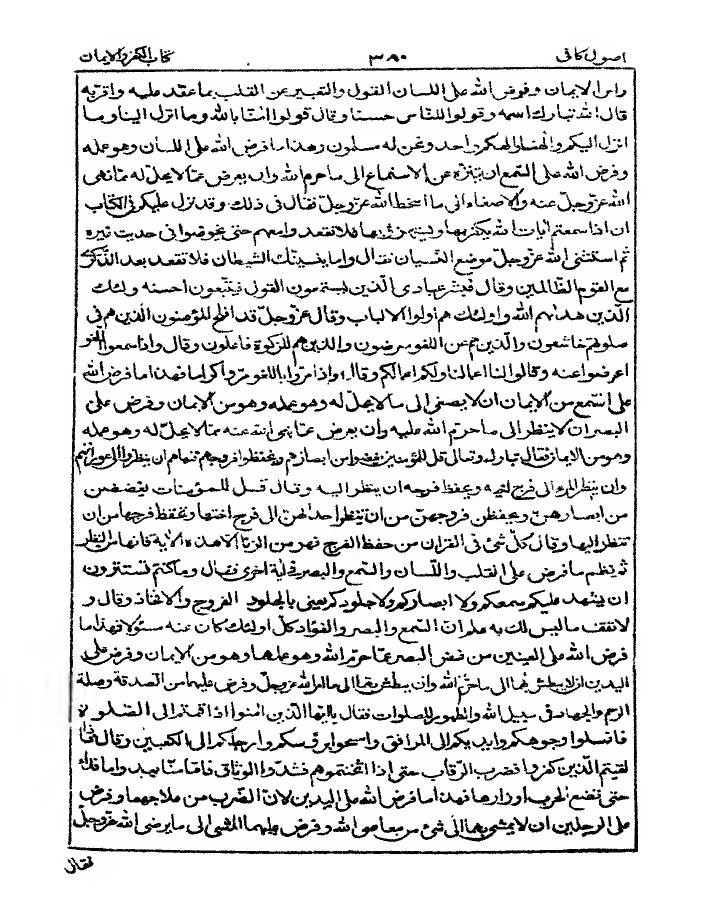 اصول كافى ٣٨٠ كتاب الكفر والايمان
وراس الايمان وفرض الله على اللسان القول والتعبير عن القلب بما عقد عليه واقر به
قال الله تبارك اسمه وقولوا للناس حسنا وقال قولوا امنا بالله وما انزل الينا وما
انزل اليكم والهنا والهكم واحد ونحن له مسلمون وهذا ما فرض الله على اللسان وهو عمله
وفرض الله على السمع ان يتنزه عن الاستماع الى ما حرم الله وان يعرض عما لا يحل له مما نهى
الله عز وجل عنه والاصغاء الى ما اسخط الله عز وجل فقال فى ذلك وقد نزل عليكم فى الكتاب
ان اذا سمعتم ايات الله يكفر بها ويستهزئ بها فلا تقعدوا معهم حتى يخوضوا فى حديث غيره
ثم استثنى الله عز وجل موضع النسيان فقال واما ينسينك الشيطان فلا تقعد بعد الذكرى
مع القوم الظالمين وقال فبشر عبادى الذين يستمعون القول فيتبعون احسنه اولئك
الذين هداهم الله واولئك هم اولوا الالباب وقال عز وجل قد افلح المؤمنون الذين هم فى
صلوتهم خاشعون والذين هم عن اللغو معرضون والذين هم للزكوة فاعلون وقال واذا سمعوا اللغو
اعرضوا عنه وقالوا لنا اعمالنا ولكم اعمالكم وقال واذا مروا باللغو مروا كراما فهذا ما فرض الله
على السمع من الايمان ان لا يصغى الى ما لا يحل له وهو عمله وهو من الايمان وفرض على
البصر ان لا ينظر الى ما حرم الله عليه وان يعرض عما نهى الله عنه مما لا يحل له وهو عمله
وهو من الايمان فقال تبارك وتعالى قل للمؤمنين يغضوا من ابصارهم ويحفظوا فروجهم فنهاهم ان ينظروا الى عوراتهم
وان ينظر المرء الى فرج اخيه ويحفظ فرجه ان ينظر اليه وقال قل للمؤمنات يغضضن
من ابصارهن ويحفظن فروجهن من ان تنظر احداهن الى فرج اختها وتحفظ فرجها من ان
تنظر اليها وقال كل شئ فى القران من حفظ الفرج فهو من الزنا الا هذه الاية فانها من النظر
ثم نظم ما فرض على القلب واللسان والسمع والبصر فى اية اخرى فقال وما كنتم تستترون
ان يشهد عليكم سمعكم ولا ابصاركم ولا جلودكم يعنى بالجلود الفروج والافخاذ وقال و
لا تقف ما ليس لك به علم ان السمع والبصر والفؤاد كل اولئك كان عنه مسئولا فهذا ما
فرض الله على العينين من غض البصر عما حرم الله وهو عملهما وهو من الايمان وفرض على
اليدين ان لا يبطش بهما الى ما حرم الله وان يبطش بهما الى ما امر الله عز وجل وفرض عليهما من الصدقة وصلة
الرحم والجهاد فى سبيل الله والطهور للصلوات فقال يا ايها الذين امنوا اذا قمتم الى الصلوة
فاغسلوا وجوهكم وايديكم الى المرافق وامسحوا برؤسكم وارجلكم الى الكعبين وقال فاذا
لقيتم الذين كفروا فضرب الرقاب حتى اذا اثخنتموهم فشدوا الوثاق فاما منا بعد واما فداء
حتى تضع الحرب اوزارها فهذا ما فرض الله على اليدين لان الضرب من علاجهما وفرض
على الرجلين ان لا يمشى بهما الى شئ من معاصى الله وفرض عليهما المشى الى ما يرضى الله عز وجل
فقال